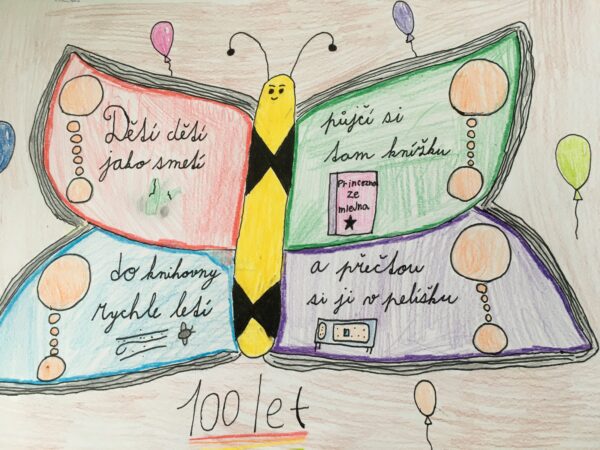 Dětí dětí
jako smetí
do knihovny
rychle letí
půjčí si
tam knížku
Princezna
ze
mlejna
a přečtou
si ji v pelíšku
100 let